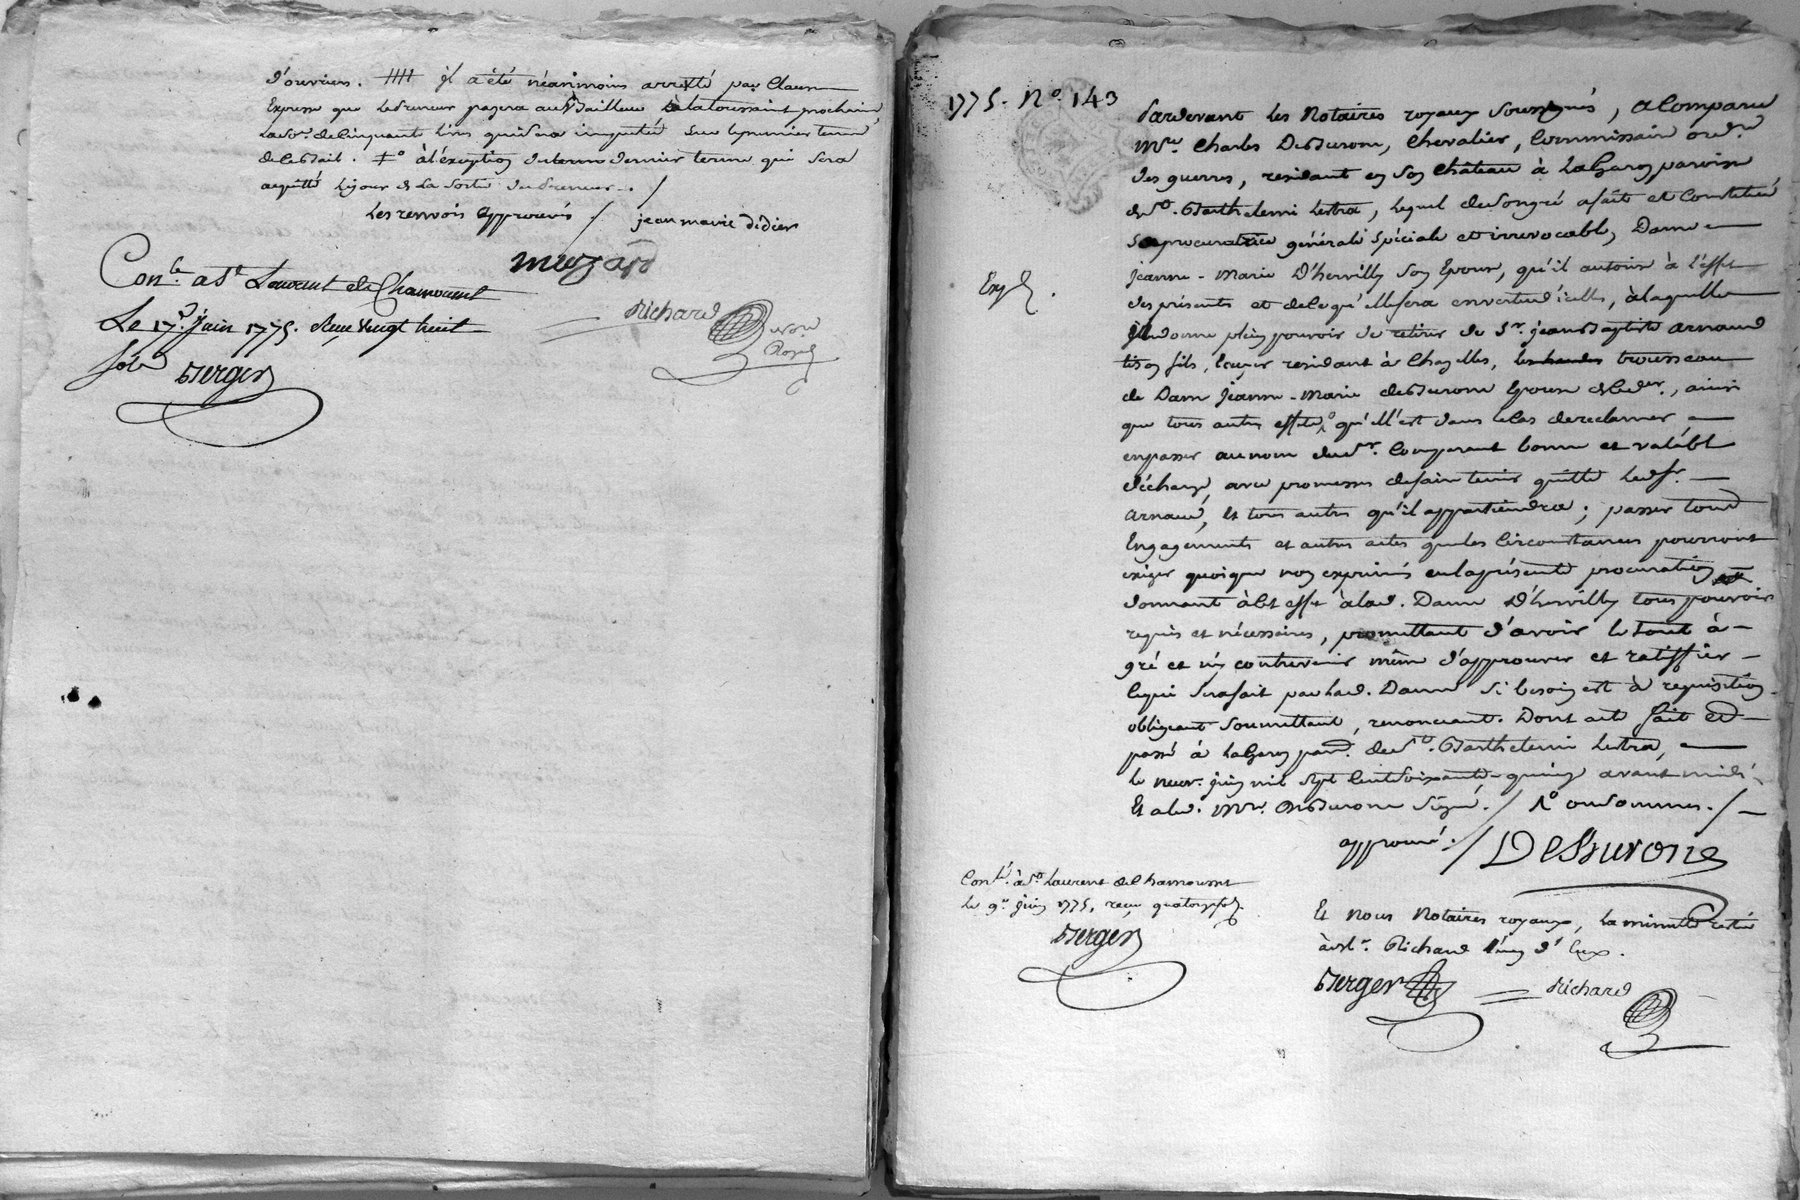 d'ouvriers. il a été néanmoins arretté par Clause
Expresse que le Preneur payera au Bailleur à la toussaint prochaine
la So.e de cinquant livres qui sera imputée sur le premier terme
de ce Bail. à l'exception du dernier terme qui sera
acquitté le jour de la Sortie du Preneur.
les renvois approuvés jean marie didier
meozard
Con.le a St Laurent de Chamousset
Le 17.e juin 1775. Reçu vingt huit
sols
Berger
Richard
1775. N° 143
Pardevant les Notaires royaux soussignés, a Comparu
M.re Charles DesBurone, Chevalier, Commissaire ord.re
des guerres, residant en son Château à paroisse
de S.t Barthelemi Lestra, lequel de son gré a fait et Constitué
Sa procuratrice générale spéciale et irrevocable, Dame
jeanne-Marie D'hervilly son Epouse, qu'il autorise à l'effet
des présentes et de ce qu'elle fera en vertu d'icelles, à laquelle
il donne plein pouvoir de retirer de S.r jean Baptiste arnaud
fils, Ecuyer residant à Chazelles, trousseau
de Dame jeanne-Marie desBurone Epouse de ce der., ainsi
que tous autres effets qu'elle est dans le cas de reclamer,
en passer au nom dud. S.r Comparant bonne et valable
décharge, avec promesse de faire tenir quitte led. Sr.
Arnaud, et tous autres qu'il appartiendra; passer tous
Engagements et autres actes que les Circonstances pourront
exiger quoique non exprimés en la présente procuration
donnant à cet effet à lad. Dame D'hervilly tous pouvoirs
requis et nécessaires, promettant d'avoir le tout à
gré et n'y contrevenir même d'approuver et ratiffier
ce qui sera fait par lad. Dame si besoin est à requisition
obligeant soumettant, renonceant. Dont acte fait et
passé à par. de S.t Barthelemi Lestra,
le neuv. juin mil sept Cent soixante-quinze avant midi
Et a led. M.re DesBurone Signé. ou sommes.
approuvé. DesBurone
Exp.
Con.lé à St Laurent de Chamousset
le 9.e juin 1775, reçu quatorze sols.
Berger
Et Nous Notaires royaux, la minutte restée
à Me. Richard l'un d'Eux.
Berger Richard